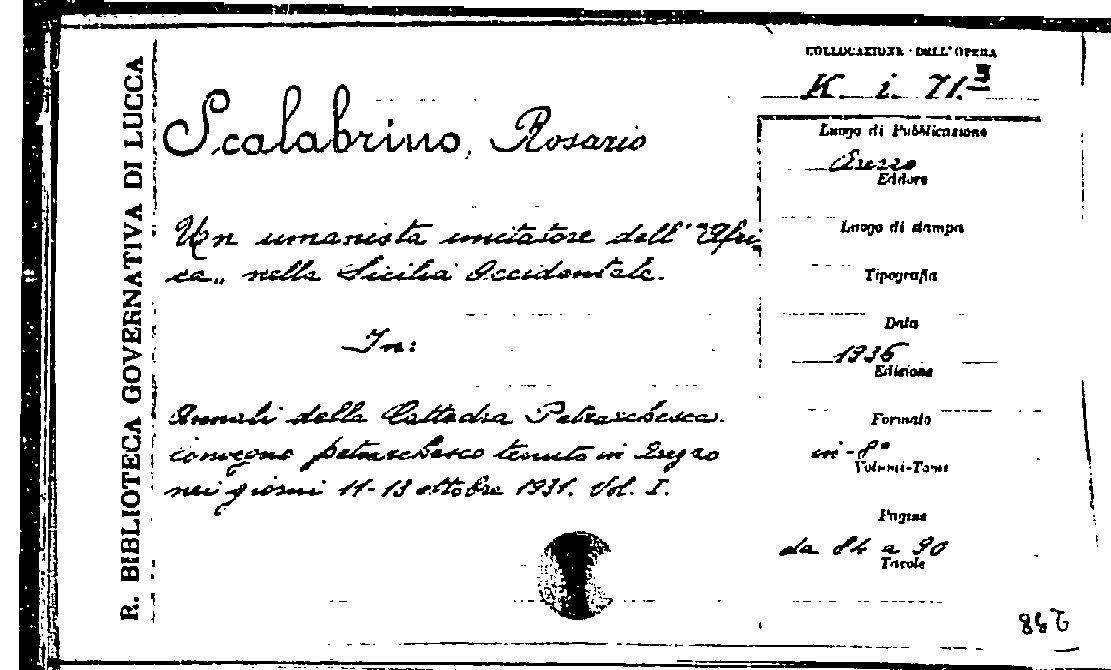 R. BIBLIOTECA GOVERNATIVA DI LUCCA
COLLOCAZIONE DELL'OPERA
K. i. 71.
Scalabrino, Rosario
Un umanista imitatore dell' "Afri-
ca" nella Sicilia Occidentale.
In:
Annali della Cattedra Petrarchesca.
convegno petrarchesco tenuto in
nei giorni 11-13 ottobre 1931. Vol. I.
Luogo di Pubblicazione
Arezzo
Editore
Luogo di stampa
Tipografia
Data
1936
Edizione
Formato
in-8°
Volumi-Tomi
Pagine
da 84 a 90
Tavole